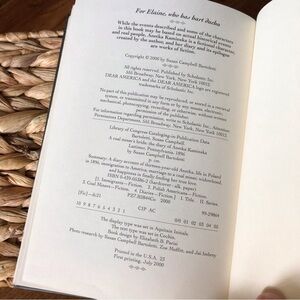 For Elaine, who has bart ducha
While the events described and some of the characters
in this book may be based on actual historical events
and real people, Anetka Kaminska is a fictional character,
created by the author, and her diary and its epilogue
are works of fiction.
Copyright © 2000 by Susan Campbell Bartoletti.
All rights reserved. Published by Scholastic Inc.
555 Broadway, New York, New York 10012.
DEAR AMERICA and the DEAR AMERICA logos are registered
trademarks of Scholastic Inc.
No part of this publication may be reproduced, or stored in a retrieval
system, or transmitted in any form or by any means, electronic,
mechanical, photocopying, recording, or otherwise,
without written permission of the publisher.
For information regarding permission, write to Scholastic Inc., Attention:
Permissions Department, 555 Broadway, New York, New York 10012.
Library of Congress Cataloging-in-Publication Data
Bartoletti, Susan Campbell
A coal miner's bride: the diary of Anetka Kaminska
by Susan Campbell Bartoletti.
Lattimer, Pennsylvania, 1896
p. cm.
Summary: A diary account of thirteen-year-old Anetka's life in Poland
in 1896, immigration to America, marriage to a coal miner, widowhood,
and happiness in finally finding her true love.
1. Coal Mines - Fiction.
I. Title. II. Series.
CIP AC
10 9 8 7 6 5 4 3 2 1
0/0 01 02 03 04 05
The display type was set in
The text type was set in Cochin.
Book design by Elizabeth B. Parisi
Photo research by Susan Campbell Bartoletti, Zoe Moffitt, and
Printed in the U.S.A. 23
First printing, July 2000